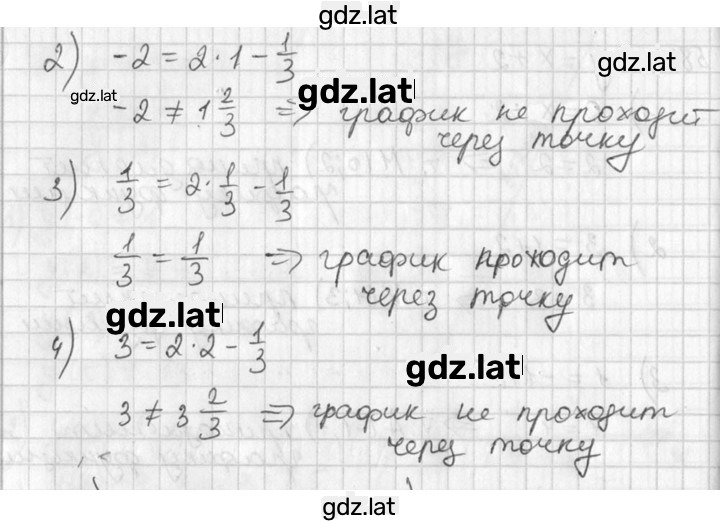 gdz.lat
2) -2 = 2·1 - 1/3
gdz.lat
gdz.lat
gdz.lat
-2 ≠ 1 2/3 => график не проходит
через точку
3) 1/3 = 2·1/3 - 1/3
1/3 = 1/3 => график проходит
через точку
gdz.lat
4) 3 = 2·2 - 1/3
gdz.lat
3 ≠ 3 2/3 => график не проходит
через точку
gdz.lat